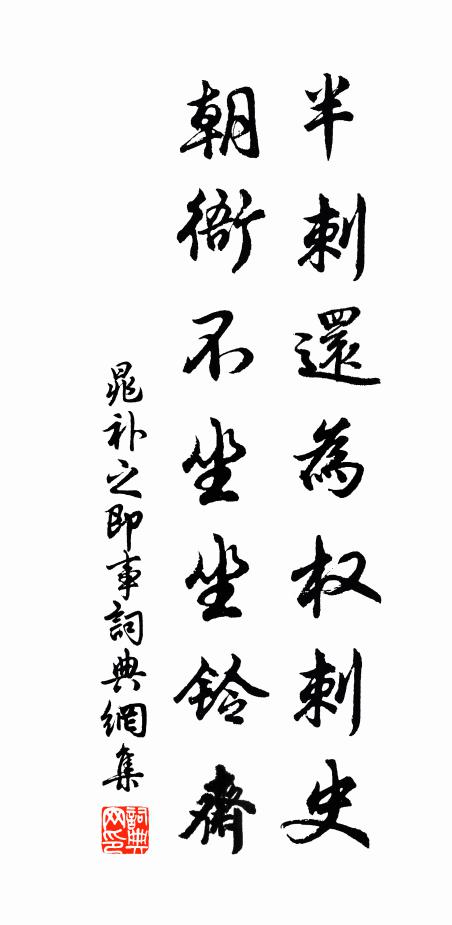 半刺還為权刺史
朝衙不坐坐鈴齋
晁补之即事詞典網集
詞典
网印